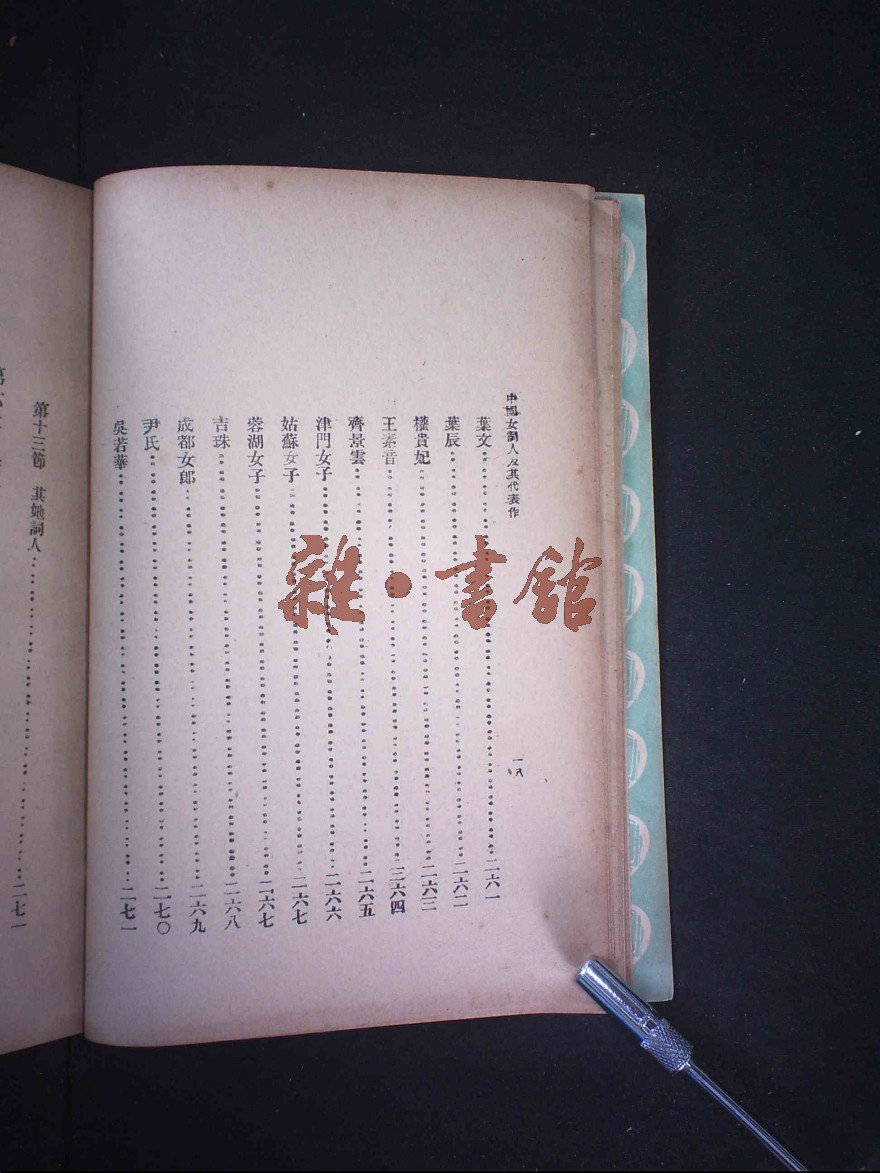 中國女詞人及其代表作
一八
葉文……二六一
葉辰……二六二
權貴妃……二六三
王素音……二六四
齊景雲……二六五
津門女子……二六六
姑蘇女子……二六七
蓉湖女子……二六七
吉珠……二六八
成都女郎……二六九
尹氏……二七〇
吳若華……二七一
第十三節 其她詞人……二七一
雜·書館